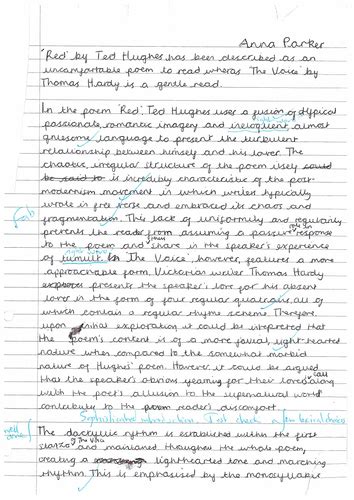 Anna Parker
'Red' by Ted Hughes has been described as an
uncomfortable poem to read wheras 'The Voice' by
Thomas Hardy is a gentle read.
In the poem 'Red', Ted Hughes uses a fusion of atypical
passionate, romantic imagery and ineloquent, almost
gruesome language to present the turbulent
relationship between himself and his lover. The
chaotic, irregular structure of the poem itself could
be said to is incredibly characteristic of the post-
modernism movement in which writers typically
wrote in free verse and embraced its chaos and
Fab
fragmentation. This lack of uniformity and regularity
prevents the reader from assuming a passive role in response
to the poem and thus share in the speaker's experience
of tumult. In 'The Voice', however, features a more
approachable form, Victorian writer Thomas Hardy
presents the speaker's love for his absent
lover in the form of four regular quatrains, all of
which contain a regular rhyme scheme. Therefore,
upon initial exploration it could be interpreted that
the poem's content is of a more jovial, light-hearted
nature when compared to the somewhat morbid
nature of Hughes' poem. However, it could be argued
that the speaker's obvious yearning for their lover's call along
with the poet's allusion to the supernatural world
contribute to the reader's discomfort.
Sophisticated introduction. Just check a few basic
well done!
The dactyllic rhythm is established within the first
stanza of 'The Voice' and maintained throughout the whole poem,
creating a lighthearted tone and marching
rhythm. This is emphasised by the monosyllabic